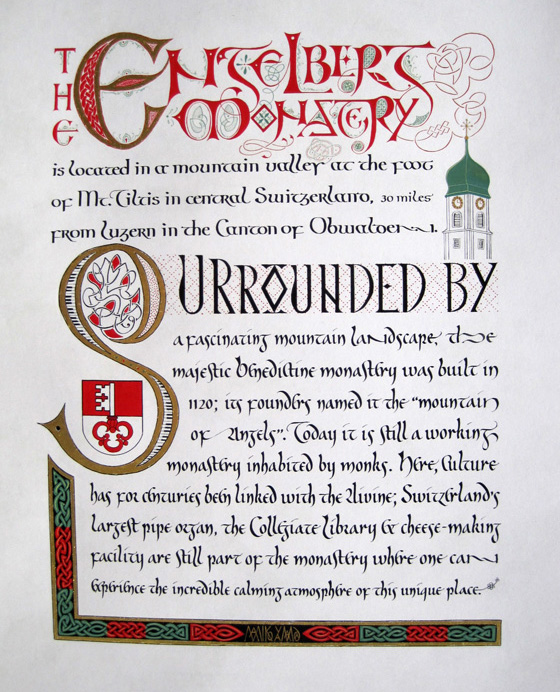 THE ENGELBERG
MONASTERY
is located in a mountain valley at the foot
of Mt. Titlis in central Switzerland, 30 miles
from Luzern in the Canton of Obwalden.
SURROUNDED BY
a fascinating mountain landscape, the
majestic Benedictine monastery was built in
1120; its founders named it the "mountain
of Angels". Today it is still a working
monastery inhabited by monks. Here, Culture
has for centuries been linked with the Divine; Switzerland's
largest pipe organ, the Collegiate Library & cheese-making
facility are still part of the monastery where one can
experience the incredible calming atmosphere of this unique place.